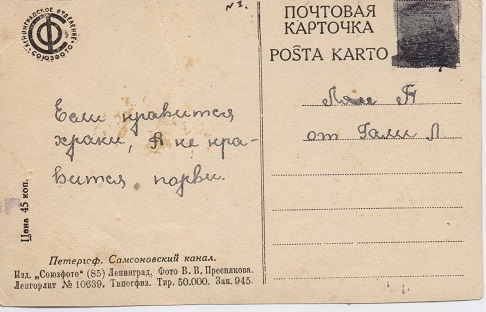 № 3.
ЛЕНИНГРАДСКОЕ ОТДЕЛЕНИЕ
СОЮЗФОТО
ПОЧТОВАЯ
КАРТОЧКА
POŜTA KARTO
Если нравится
храни, А не нра-
вится порви.
Ляле П
от Гали Л
Цена 45 коп.
Петергоф. Самсоновский канал.
Изд. „Союзфото" (85) Ленинград, Фото В. В. Преснякова.
Ленгорлит № 10639. Типогфиз. Тир. 50.000. Зак. 945.